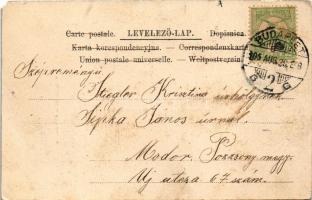 Carte postale. LEVELEZŐ-LAP. Dopisnica.
Karta korespondencyjna. Correspondenzkarte
Union postale universelle. Weltpostverein
BUDAPEST
905 AUG.
2
G G
Stiegler Krisztina úrhölgynek
Sipka János úrnál.
Modor. Pozsony megy.
Uj utcza 67 szám.